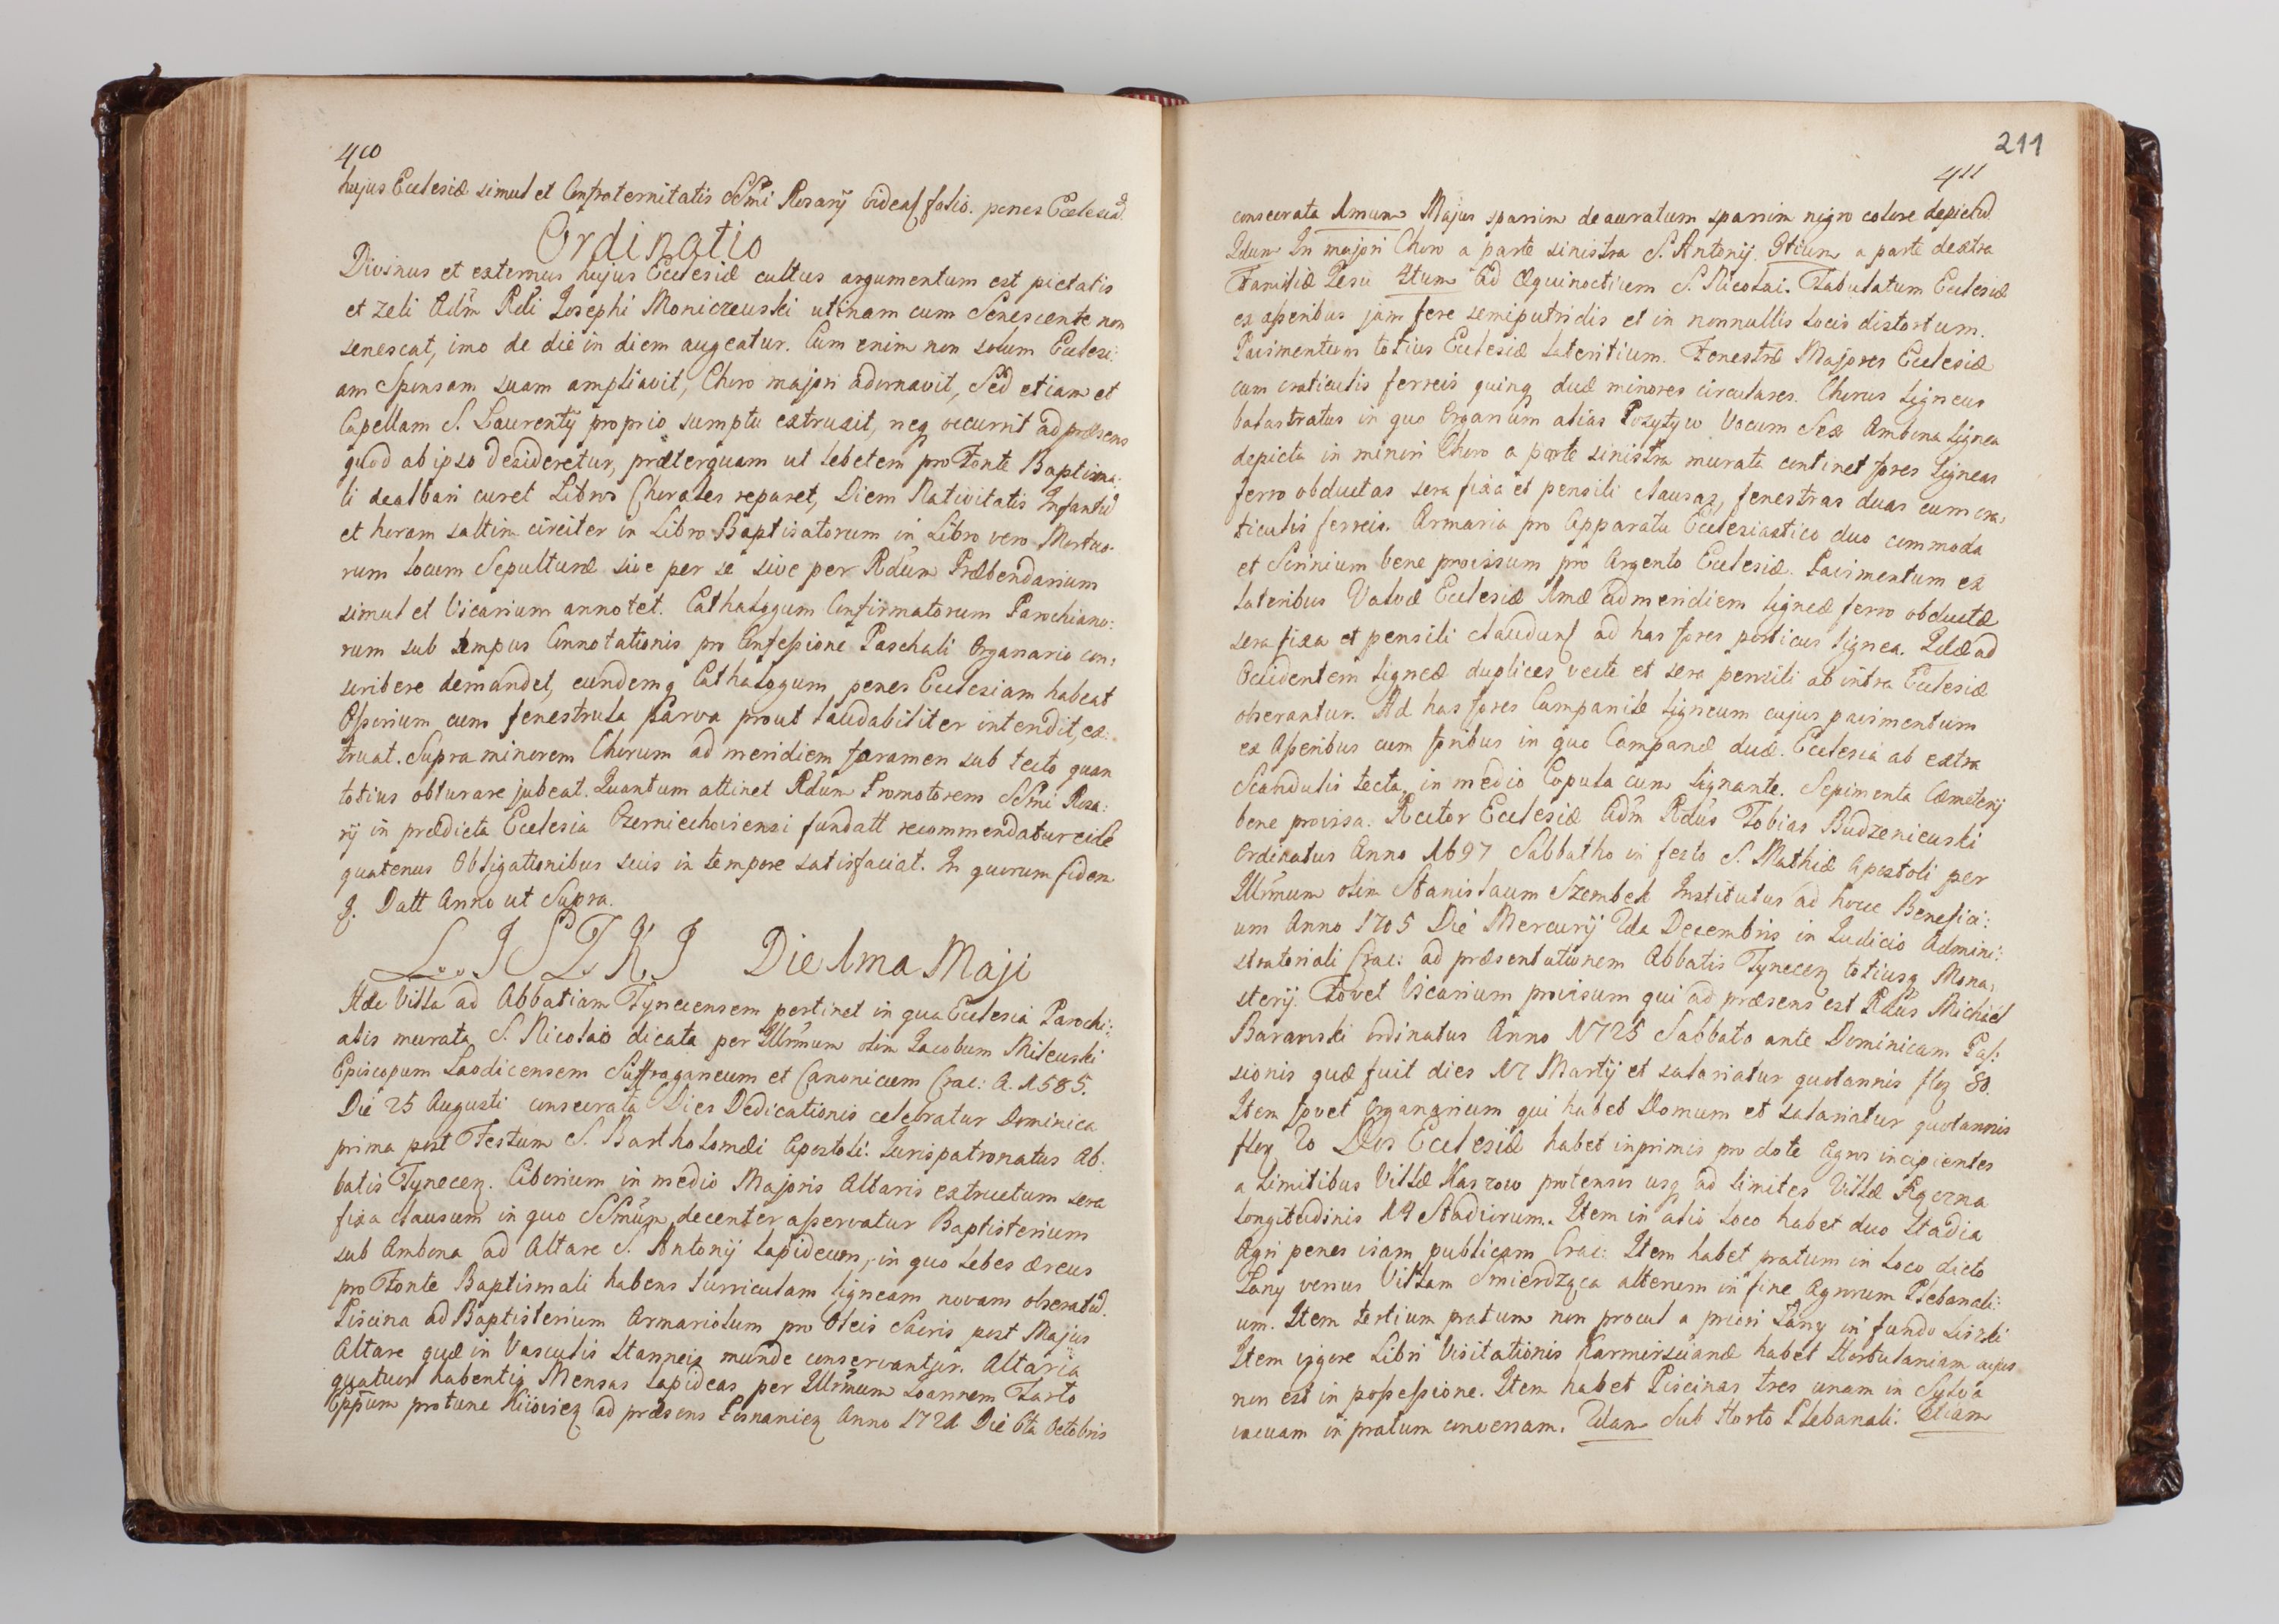 410
hujus Ecclesiæ simul et Confraternitatis SSmi Rosarij videat folio. penes Ecclesiã.
Ordinatio
Divinus et externus hujus Ecclesiæ cultus argumentum est pietatis
et zeli Adm̃ Rdi Josephi Moniczewski utinam cum Senescente non
senescat, imo de die in diem augeatur. Cum enim non solum Ecclesi:
am Sponsam suam ampliavit, Choro majori adornavit, Sed etiam et
Capellam S. Laurentij proprio sumptu extruxit, neq occurrit ad præsens
quod ab ipso desideretur, præterquam ut lebetem pro Fonte Baptisma:
li dealbari curet Libros Chorales reparet, Diem Nativitatis Infantũ
et horam saltim circiter in Libro Baptisatorum in Libro vero Mortuo-
rum locum Sepulturæ sive per se sive per Rdum Præbendarium
simul et Vicarium annotet. Cathalogum Confirmatorum Parochiano:
rum sub tempus Connotationis pro Confessione Paschali Organario con:
scribere demandet, eundemq Cathalogum penes Ecclesiam habeat
Ossorium cum fenestrula parva prout laudabiliter intendit, ex:
truat. Supra minorem Chorum ad meridiem foramen sub tecto quan
totius obturare jubeat. Quantum attinet Rdum Promotorem SSmi Rosa:
rij in prædicta Ecclesia Czernichoviensi fundatt recommendatur eidẽ
quatenus Obligationibus suis in tempore satisfaciat. In quorum fidem
Datt Anno ut Supra.
LISZKI Die 1ma Maji
Hæc Villa ad Abbatiam Tynecensem pertinet in qua Ecclesia Parochi:
alis murata S. Nicolao dicata per Illrmum olim Jacobum Milewski
Episcopum Laodicensem Suffraganeum et Canonicum Crac: A. 1585.
Die 25 Augusti consecrata Dies Dedicationis celebratur Dominica
prima post Festum S. Bartholomæi Apostoli: Jurispatronatus Ab:
batis Tynecen. Ciborium in medio Majoris Altaris extructum sera
fixa clausum in quo SSmũm decenter asservatur Baptisterium
sub Ambona ad Altare S. Antonij lapideum, in quo lebes æreus
pro Fonte Baptismali habens turriculam ligneam novam obseratã.
Piscina ad Baptisterium Armariolum pro Oleis Sacris post Majus
Altare quæ in Vasculis stanneis munde conservantur. Altaria
quatuor habentia Mensas lapideas per Illrmum Joannem Tarło
Eppum protunc Kiiovien ad præsens Posnanien Anno 1721 Die 6ta Octobris
211
411
consecrata 1mum Majus sparsim deauratum sparsim nigro colore depictũ
2dum In majori Choro a parte sinistra S. Antonij. 3tium a parte dextra
Familiæ Jesu 4tum ad Æquinoctium S. Nicolai. Tabulatum Ecclesiæ
ex asseribus jam fere semiputridis et in nonnullis locis distortum.
Pavimentum totius Ecclesiæ lateritium. Fenestræ Majores Ecclesiæ
cum craticulis ferreis quinq duæ minores circulares. Chorus ligneus
balastratus in quo Organum alias Pozytyw Vocum Sex Ambona lignea
depicta in minori Choro a parte sinistra murata continet fores ligneas
ferro obductas sera fixa et pensili clausas, fenestras duas cum cra:
ticulis ferreis. Armaria pro Apparatu Ecclesiastico duo commoda
et Scrinium bene provisum pro Argento Ecclesiæ. Pavimentum ex
lateribus Valvæ Ecclesiæ 1mæ ad meridiem ligneæ ferro obductæ
sera fixa et pensili claudunt ad has fores porticus lignea. 2dæ ad
Occidentem ligneæ duplices vecte et sera pensili ab intra Ecclesiæ
obserantur. Ad has fores Campanile ligneum cujus pavimentum
ex Asseribus cum foribus in quo Campanæ duæ. Ecclesia ab extra
Scandulis tecta, in medio Copula cum Signante. Sepimenta Cæmeterij
bene provisa. Rector Ecclesiæ Adm̃ Rdus Tobias Budzeniewski
Ordinatus Anno 1697 Sabbatho in festo S. Mathiæ Apostoli per
Illrmum olim Stanislaum Szembek Institutus ad hocce Benefici:
um Anno 1705 Die Mercurij 2da Decembris in Judicio Admini:
stratoriali Crac: ad præsentationem Abbatis Tynecen totiusq Mona:
sterij. Fovet Vicarium provisum qui ad præsens est Rdus Michael
Baranski ordinatus Anno 1725 Sabbato ante Dominicam Pas:
sionis quæ fuit dies 17 Martij et salariatur quotannis flor 80.
Item fovet Organarium qui habet Domum et salariatur quotannis
flor 20 Dos Ecclesiæ habet inprimis pro dote Agros incipientes
a limitibus Villæ Kaszow protensos usq ad limites Villæ Rączna
longitudinis 14 Stadiorum. Item in alio loco habet duo Stadia
Agri penes viam publicam Crac: Item habet pratum in loco dicto
Łany versus Villam Smierdząca alterum in fine Agrorum Plebanali:
um. Item tertium pratum non procul a priori Łany in fundo Liszki
Item vigore Libri Visitationis Kazmirscianæ habet Hortulaniam cujus
non est in possessione. Item habet Piscinas tres unam in Sylva
vacuam in pratum conversam. 2dam Sub Horto Plebanali: 3tiam